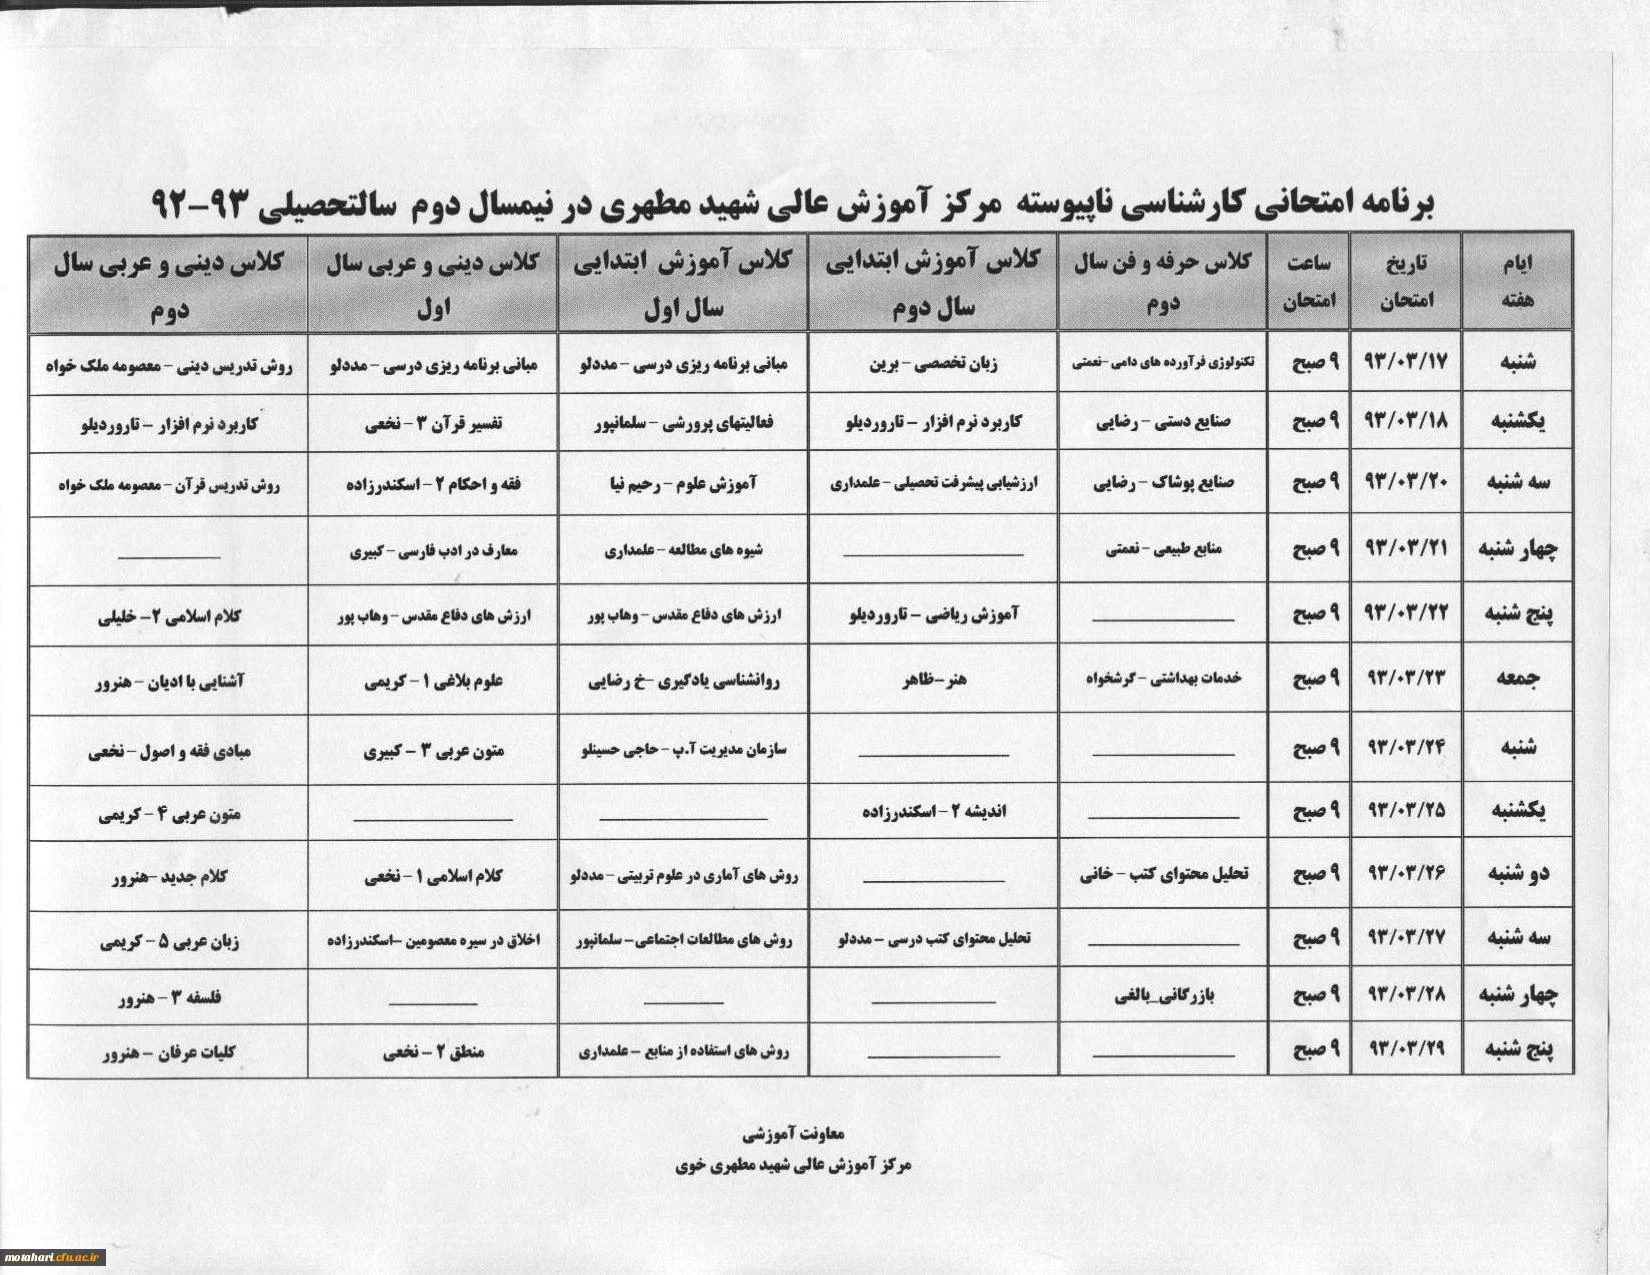 برنامه امتحانی کارشناسی ناپیوسته مرکز آموزش عالی شهید مطهری در نیمسال دوم سالتحصیلی ۹۳-۹۲
ایام هفته	تاریخ امتحان	ساعت امتحان	کلاس حرفه و فن سال دوم	کلاس آموزش ابتدایی سال دوم	کلاس آموزش ابتدایی سال اول	کلاس دینی و عربی سال اول	کلاس دینی و عربی سال دوم
شنبه	۹۳/۰۳/۱۷	۹ صبح	تکنولوژی فرآورده های دامی -نعمتی	زبان تخصصی - برین	مبانی برنامه ریزی درسی - مددلو	مبانی برنامه ریزی درسی - مددلو	روش تدریس دینی - معصومه ملک خواه
یکشنبه	۹۳/۰۳/۱۸	۹ صبح	صنایع دستی - رضایی	کاربرد نرم افزار - تاروردیلو	فعالیتهای پرورشی - سلمانپور	تفسیر قرآن ۳ - نخعی	کاربرد نرم افزار - تاروردیلو
سه شنبه	۹۳/۰۳/۲۰	۹ صبح	صنایع پوشاک - رضایی	ارزشیابی پیشرفت تحصیلی - علمداری	آموزش علوم - رحیم نیا	فقه و احکام ۲ - اسکندرزاده	روش تدریس قرآن - معصومه ملک خواه
چهار شنبه	۹۳/۰۳/۲۱	۹ صبح	منابع طبیعی - نعمتی	ــــــــ	شیوه های مطالعه - علمداری	معارف در ادب فارسی - کبیری	ــــــــ
پنج شنبه	۹۳/۰۳/۲۲	۹ صبح	ــــــــ	آموزش ریاضی - تاروردیلو	ارزش های دفاع مقدس - وهاب پور	ارزش های دفاع مقدس - وهاب پور	کلام اسلامی ۲- خلیلی
جمعه	۹۳/۰۳/۲۳	۹ صبح	خدمات بهداشتی - گرشخواه	هنر-ظاهر	روانشناسی یادگیری -خ رضایی	علوم بلاغی ۱ - کریمی	آشنایی با ادیان - هنرور
شنبه	۹۳/۰۳/۲۴	۹ صبح	ــــــــ	ــــــــ	سازمان مدیریت آ.پ - حاجی حسینلو	متون عربی ۳ - کبیری	مبادی فقه و اصول - نخعی
یکشنبه	۹۳/۰۳/۲۵	۹ صبح	ــــــــ	اندیشه ۲ - اسکندرزاده	ــــــــ	ــــــــ	متون عربی ۴ - کریمی
دو شنبه	۹۳/۰۳/۲۶	۹ صبح	تحلیل محتوای کتب - خانی	ــــــــ	روش های آماری در علوم تربیتی - مددلو	کلام اسلامی ۱ - نخعی	کلام جدید -هنرور
سه شنبه	۹۳/۰۳/۲۷	۹ صبح	ــــــــ	تحلیل محتوای کتب درسی - مددلو	روش های مطالعات اجتماعی - سلمانپور	اخلاق در سیره معصومین -اسکندرزاده	زبان عربی ۵ - کریمی
چهار شنبه	۹۳/۰۳/۲۸	۹ صبح	بازرگانی_بالغی	ــــــــ	ــــــــ	ــــــــ	فلسفه ۳ - هنرور
پنج شنبه	۹۳/۰۳/۲۹	۹ صبح	ــــــــ	ــــــــ	روش های استفاده از منابع - علمداری	منطق ۲ - نخعی	کلیات عرفان - هنرور
معاونت آموزشی
مرکز آموزش عالی شهید مطهری خوی
motahari.cfu.ac.ir